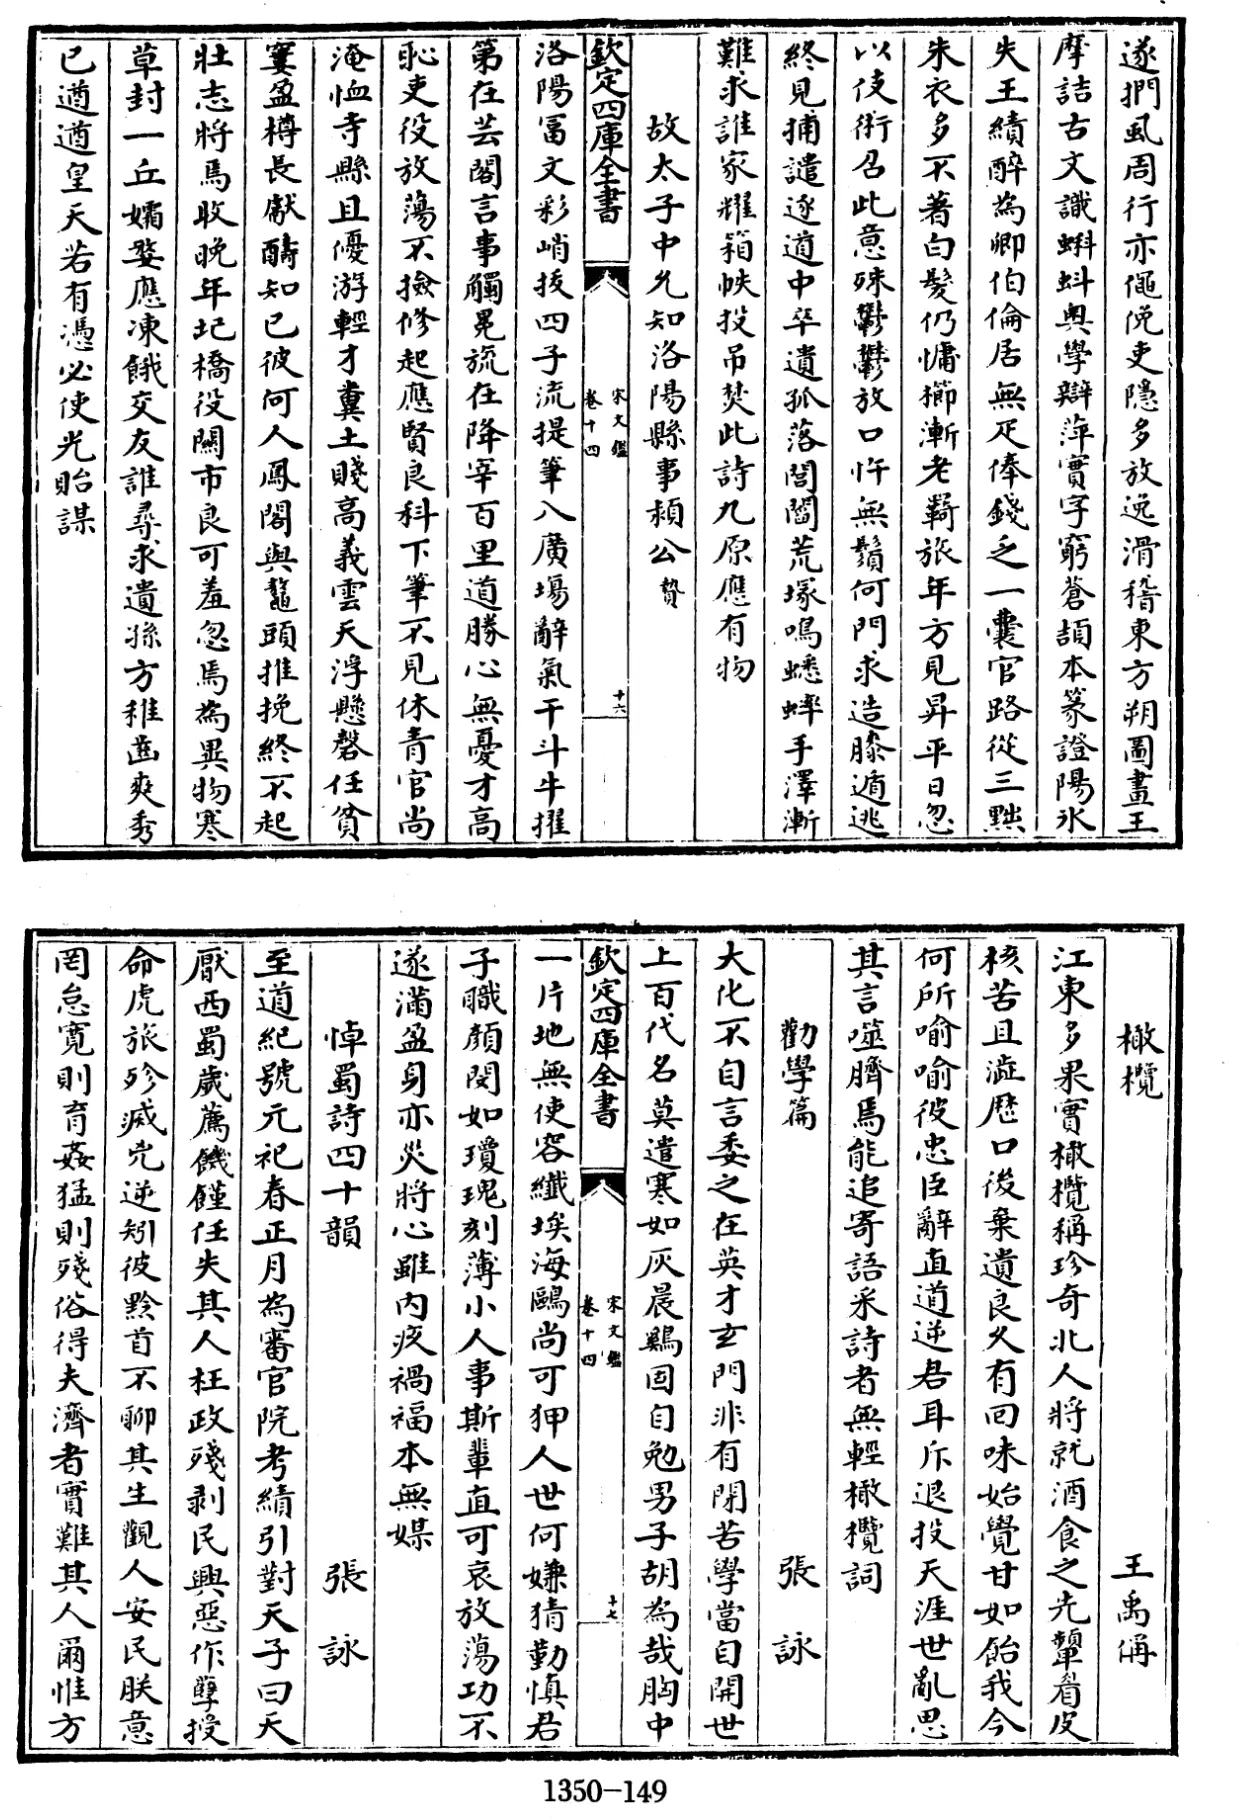 遂捫虱周行亦僶俛吏隱多放逸滑稽東方朔圖畫王
摩詰古文識蝌蚪奥學辯萍實字窮蒼頡本篆證陽氷
失王績醉為卿伯倫居無疋俸錢乏一囊官路從三黜
朱衣多不著白髮仍慵櫛漸老覊旅年方見昇平日忽
以伎術召此意殊鬱鬱放口忤無鬚何門求造膝遁逃
終見捕譴逐道中卒遺孤落閭閻荒塚鳴蟋蟀手澤漸
難求誰家耀箱帙投吊焚此詩九原應有物
故太子中允知洛陽縣事頼公贄
欽定四庫全書
宋文鑑
卷十四
十六
洛陽富文彩峭拔四子流提筆入廣場辭氣干斗牛擢
第在芸閣言事觸冕旒在降宰百里道勝心無憂才高
恥吏役放蕩不撿修起應賢良科下筆不見休青官尚
淹恤寺縣且優游輕才糞土賤高義雲天浮懸磬任貧
窶盈樽長獻酬知已彼何人鳳閣與鼇頭推挽終不起
壯志將焉收晚年圮橋役闤市良可羞忽焉為異物寒
草封一丘孀婺應凍餓交友誰尋求遺孫方稚齒爽秀
已遒遒皇天若有憑必使光貽謀
橄欖 王禹偁
江東多果實橄欖稱珍奇北人將就酒食之先顰眉皮
核苦且澁歴口後棄遺良久有回味始覺甘如飴我今
何所喻喻彼忠臣辭直道逆君耳斥退投天涯世亂思
其言噬臍焉能追寄語采詩者無輕橄欖詞
勸學篇 張詠
大化不自言委之在英才玄門非有閉苦學當自開世
上百代名莫遣寒如灰晨鷄固自勉男子胡為哉胸中
欽定四庫全書
宋文鑑
卷十四
十七
一片地無使容纎埃海鷗尚可狎人世何嫌猜勤慎君
子職顔閔如瓊瑰刻薄小人事斯輩直可哀放蕩功不
遂滿盈身亦災將心雖内疚禍福本無媒
悼蜀詩四十韻 張詠
至道紀號元祀春正月為審官院考績引對天子曰天
厭西蜀歲薦饑饉任失其人枉政殘剥民興惡作孽授
命虎旅殄滅兇逆矧彼黔首不聊其生觀人安民朕意
罔怠寛則育姦猛則殘俗得夫濟者實難其人爾惟方
1350-149